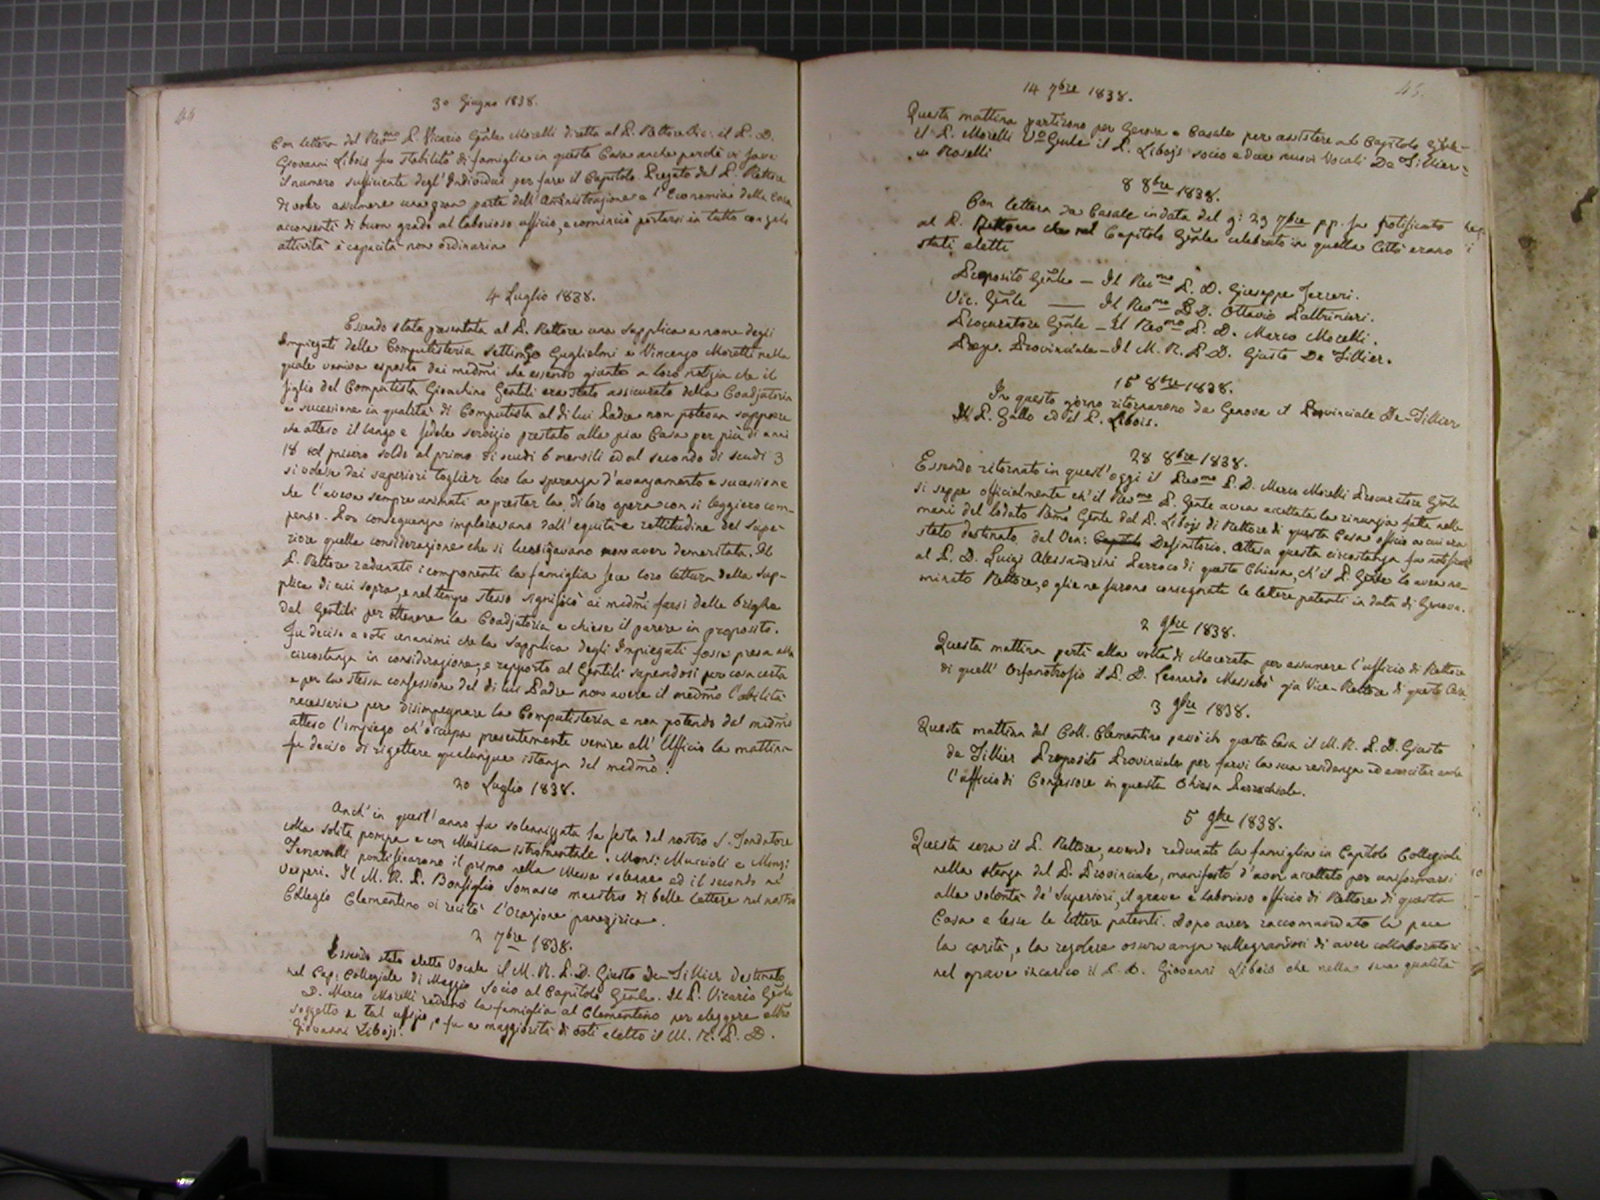 44
30 Giugno 1838.
Con lettera del Revmo P. Vicario Gnle Morelli diretta al P. Rettore il P. D.
Giovanni Libois fu stabilito di famiglia in questa Casa anche perchè vi fosse
il numero sufficiente degl' Individui per fare il Capitolo. Pregato dal P. Rettore
di voler assumere una gran parte dell' Amministrazione e l' Economia della Casa
acconsentì di buon grado al laborioso ufficio, e cominciò portarsi in tutto con zelo
attività e capacità non ordinaria
4 Luglio 1838.
Essendo stata presentata al P. Rettore una supplica a nome degli
Impiegati della Computisteria Settimio Guglielmi e Vincenzo Moretti nella
quale veniva esposto dai medmi che essendo giunta a loro notizia che il
figlio del Computista Gioachino Gentili era stato assicurato della Coadjutoria
e sucessione in qualità di Computista al di lui Padre non potevan supporre
che atteso il lungo e fedele servizio prestato alla pia Casa per più di anni
18 col misero soldo al primo di scudi 6 mensili ed al secondo di scudi 3
si volesse dai superiori toglier loro la speranza d'avanzamento e sucessione
che l'aveva sempre animati a prestar la di loro opera con sì leggiero com-
penso. Per conseguenza imploravano dall' equità e rettitudine del Supe-
riore quella considerazione che si lusingavano non aver demeritata. Il
P. Rettore radunati i componenti la famiglia fece loro lettura della sup-
plica di cui sopra, e nel tempo stesso significò ai medmi farsi delle brighe
dal Gentili per ottenere la Coadjutoria e chiese il parere in proposito.
Fu deciso a voti unanimi che la supplica degli Impiegati fosse presa alla
circostanza in considerazione, e rapporto al Gentili sapendosi per cosa certa
e per la stessa confessione del di lui Padre non avere il medmo l'abilità
necessaria per disimpegnare la Computisteria e non potendo dal medmo
atteso l'impiego ch'occupa presentemente venire all' Ufficio la mattina
fu deciso di rigettare qualunque istanza del medmo.
20 Luglio 1838.
Anch' in quest' anno fu solennizzata la festa del nostro S. Fondatore
colla solita pompa e con Musica istromentale. Monsi: Muccioli e Monsi:
pontificarono il primo nella Messa solenne ed il secondo ne'
Vesperi. Il M. R. P. Bonfiglio Somasco maestro di belle lettere nel nostro
Collegio Clementino vi recitò l'Orazione panegirica.
2 7bre 1838.
Essendo stato eletto Vocale il M. R. P. D. Giusto De-Tillier destinato
nel Cap: Collegiale di Maggio Socio al Capitolo Gnle. Il P. Vicario Gnle
D. Marco Morelli radunò la famiglia al Clementino per eleggere altro
soggetto a tal uffizio, e fu a maggiorità di voti eletto il M. R. P. D.
Giovanni Libojs.
45.
14 7bre 1838.
Questa mattina partirono per Genova e Casale per assistere al Capitolo Gnle-
il P. Morelli Vo Gnle il P. Libojs socio e due nuovi Vocali De Tillier
e Roselli
8 8bre 1838.
Con lettera da Casale in data del g: 29 7bre pp. fu notificato
al P. Rettore che nel Capitolo Gnle celebrato in quella Città erano
stati eletti
Preposito Gnle — Il Revmo P. D. Giuseppe Ferreri.
Vic. Gnle — Il Revmo P. D. Ottavio Paltrinieri.
Procuratore Gnle — Il Revmo P. D. Marco Morelli.
Prep. Provinciale — Il M. R. P. D. Giusto De Tillier.
15 8bre 1838.
In questo giorno ritornarono da Genova il Provinciale De-Tillier
Il P. Gallo ed il P. Libois.
28 8bre 1838.
Essendo ritornato in quest' oggi il Revmo P. D. Marco Morelli Procuratore Gnle
si seppe officialmente ch' il Revmo P. Gnle avea accettata la rinunzia fatta nelle
mani del lodato Pmo Gnle dal P. Libojs di Rettore di questa Casa officio a cui era
stato destinato dal Ven: Capitolo Definitorio. Attesa questa circostanza fu notificato
al P. D. Luigi Alessandrini Parroco di questa Chiesa, ch' il P. Gnle lo avea no-
minato Rettore, e gliene furono consegnate le lettere patenti in data di Genova.
2 9bre 1838.
Questa mattina partì alla volta di Macerata per assumere l'ufficio di Rettore
di quell' Orfanotrofio il P. D. Leonardo Massabò già Vice-Rettore di questa Casa
3 9bre 1838.
Questa mattina dal Coll. Clementino passò in questa Casa il M. R. P. D. Giusto
de Tillier Preposito Provinciale per farvi la sua residenza ed esercitar anche
l'ufficio di Confessore in questa Chiesa Parrochiale.
5 9bre 1838.
Questa sera il P. Rettore, avendo radunata la famiglia in Capitolo Collegiale
nella stanza del P. Provinciale, manifestò d'aver accettato per uniformarsi
alla volontà de' Superiori, il grave e laborioso officio di Rettore di questa
Casa e lesse le lettere patenti. Dopo aver raccomandato la pace
la carità, e la regolare osservanza rallegrandosi di aver collaboratori
nel grave incarico il P. D. Giovanni Libois che nella sua qualità